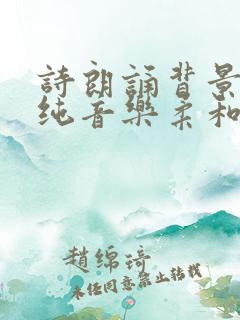 詩朗誦背景
纯音樂柔和
趙绵琦
未任同意禁止转载